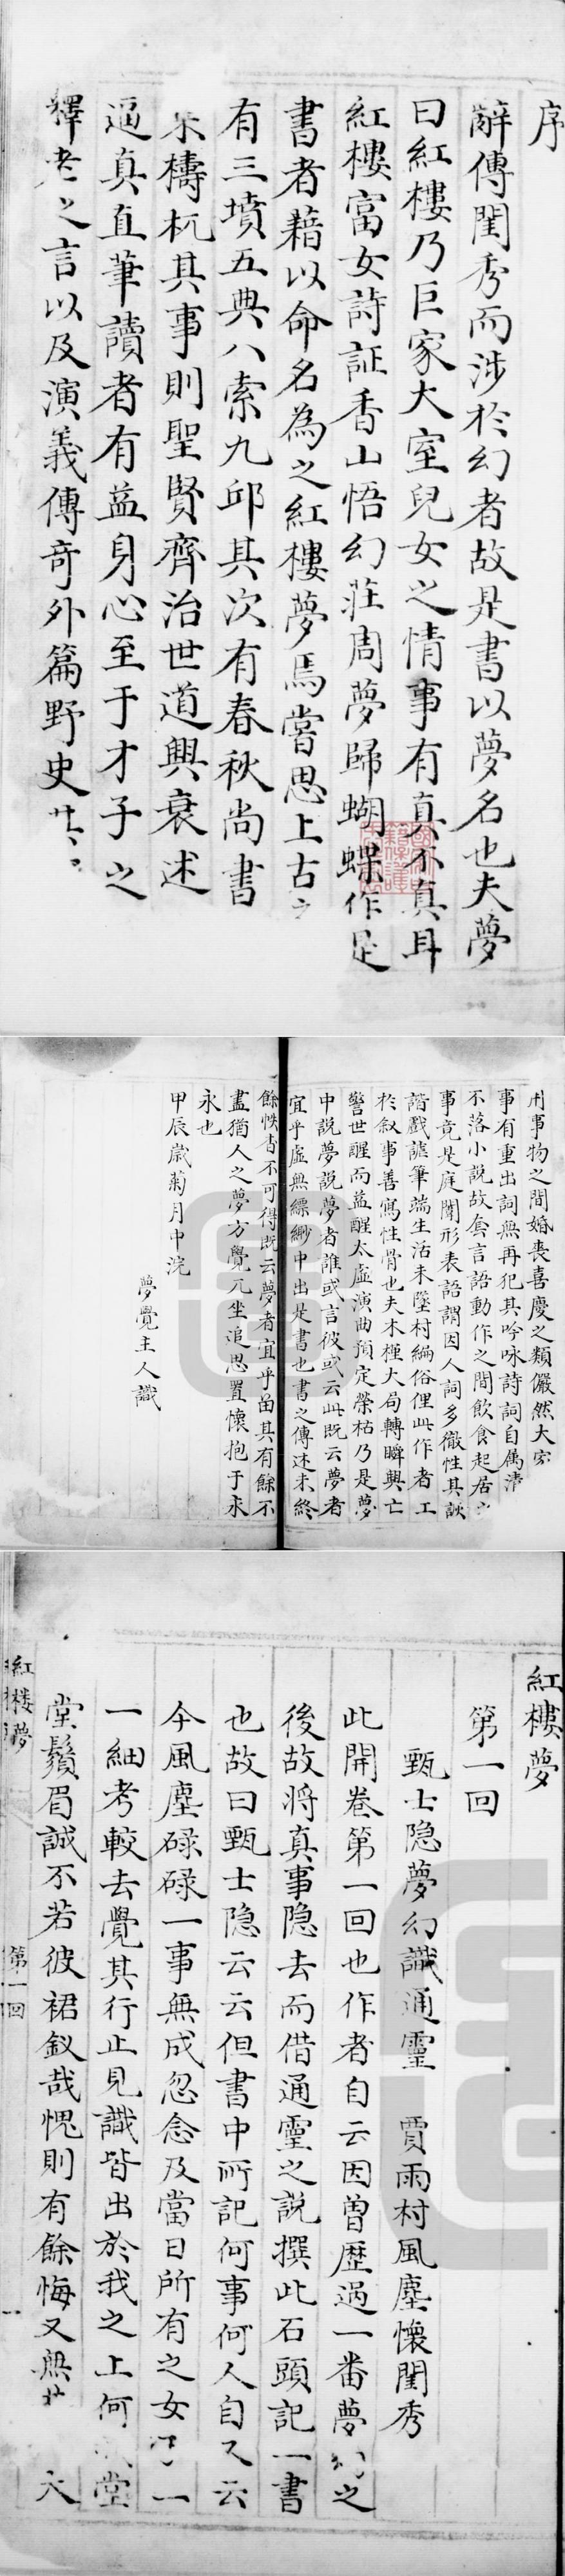 序
辭傳閨秀而涉於幻者故是書以夢名也夫夢
曰紅樓乃巨家大室兒女之情事有真不真耳
紅樓富女詩証香山悟幻莊周夢歸蝴蝶作是
書者藉以命名為之紅樓夢焉嘗思上古之
有三墳五典八索九邱其次有春秋尚書
檮杌其事則聖賢齊治世道興衰述
逼真直筆讀者有益身心至于才子之
釋老之言以及演義傳奇外篇野史
事物之間婚喪喜慶之類儼然大家
事有重出詞無再犯其吟咏詩詞自属清
不落小說故套言語動作之間飲食起居之
事竟是庭闈形表語謂因人詞多徹性其詼
諧戲謔筆端生活未墜村編俗俚此作者工
於叙事善寫性骨也夫木槿大局轉瞬興亡
警世醒而益醒太虛演曲預定榮枯乃是夢
中說夢說夢者誰或言彼或云此既云夢者
宜乎虛無縹緲中出是書也書之傳述未終
餘帙杳不可得既云夢者宜乎留其有餘不
盡猶人之夢方覺兀坐追思置懷抱于永
永也
甲辰歲菊月中浣
夢覺主人識
紅樓夢
第一回
甄士隐夢幻識通靈 賈雨村風塵懷閨秀
此開卷第一回也作者自云因曽歷過一番夢幻之
後故將真事隐去而借通靈之說撰此石頭記一書
也故曰甄士隐云云但書中所記何事何人自又云
今風塵碌碌一事無成忽念及當日所有之女一
一細考較去覺其行止見識皆出於我之上何堂
堂鬚眉誠不若彼裙釵哉愧則有餘悔又無大
紅樓夢
第一回